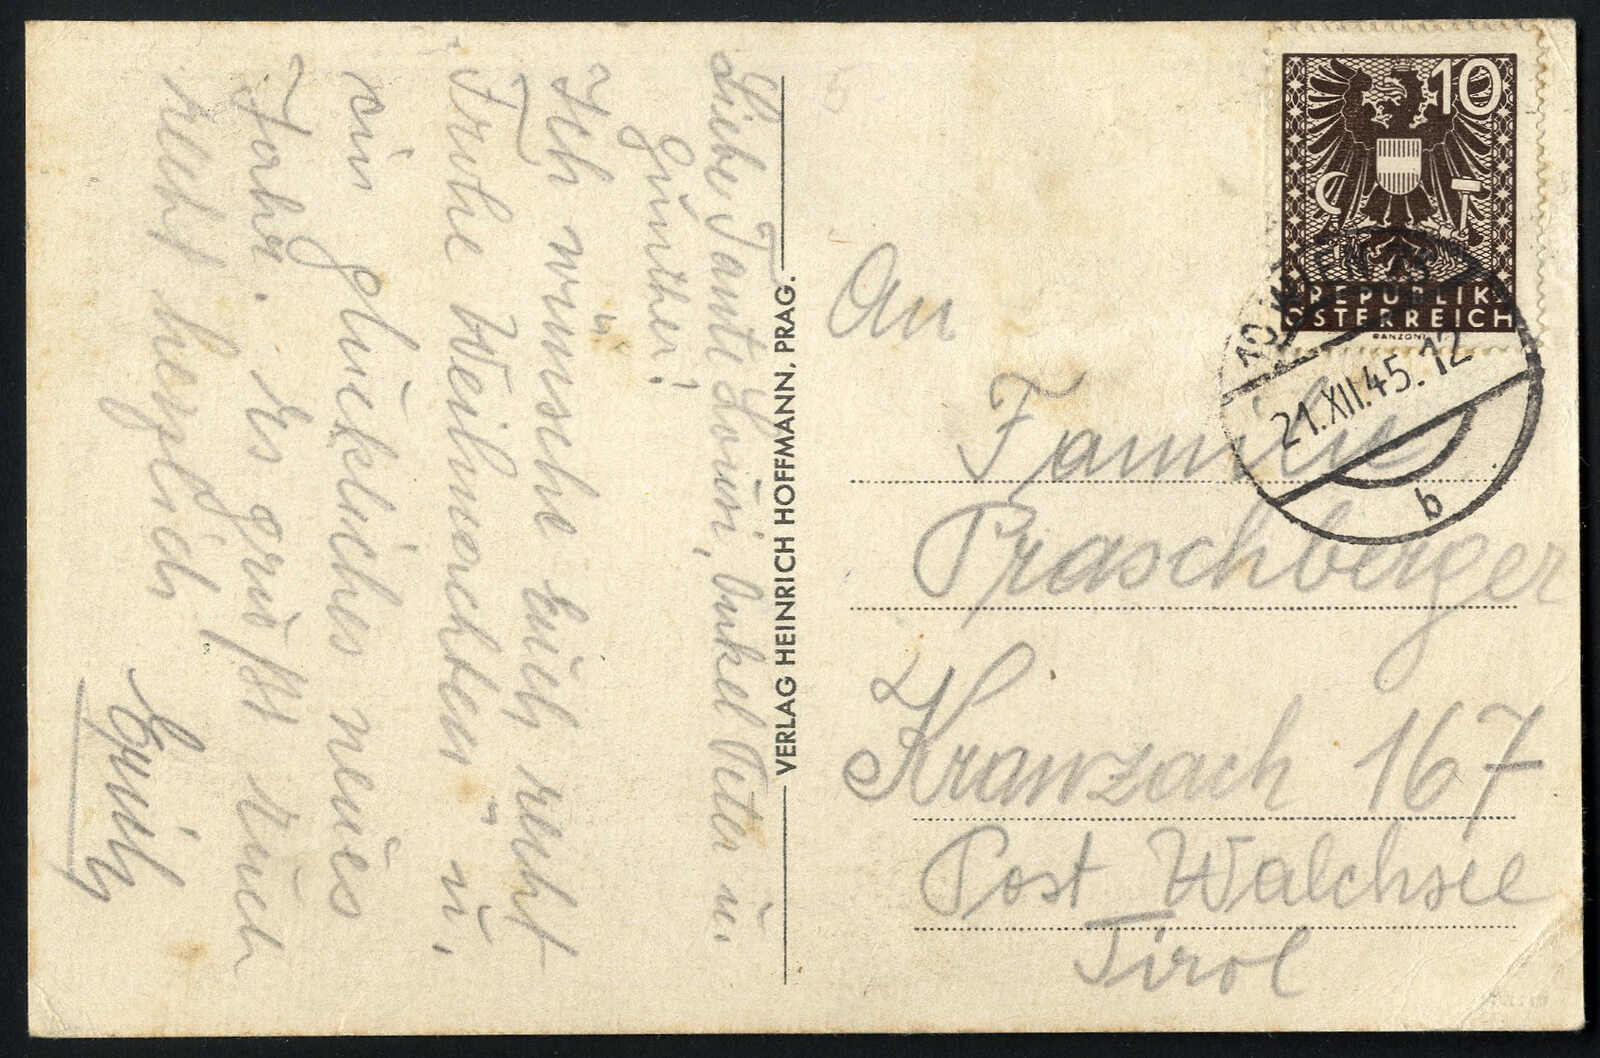 Liebe Tante Louisi, Onkel Peter u.
Günther!
Ich wünsche Euch recht
Frohe Weihnachten u.
ein glückliches neues
Jahr. Es grüßt Euch
recht herzlich
VERLAG HEINRICH HOFFMANN, PRAG.
10
REPUBLIK
ÖSTERREICH
21.XII.45.12
b
An
Familie
Praschberger
Kranzach 167
Post Walchsee
Tirol